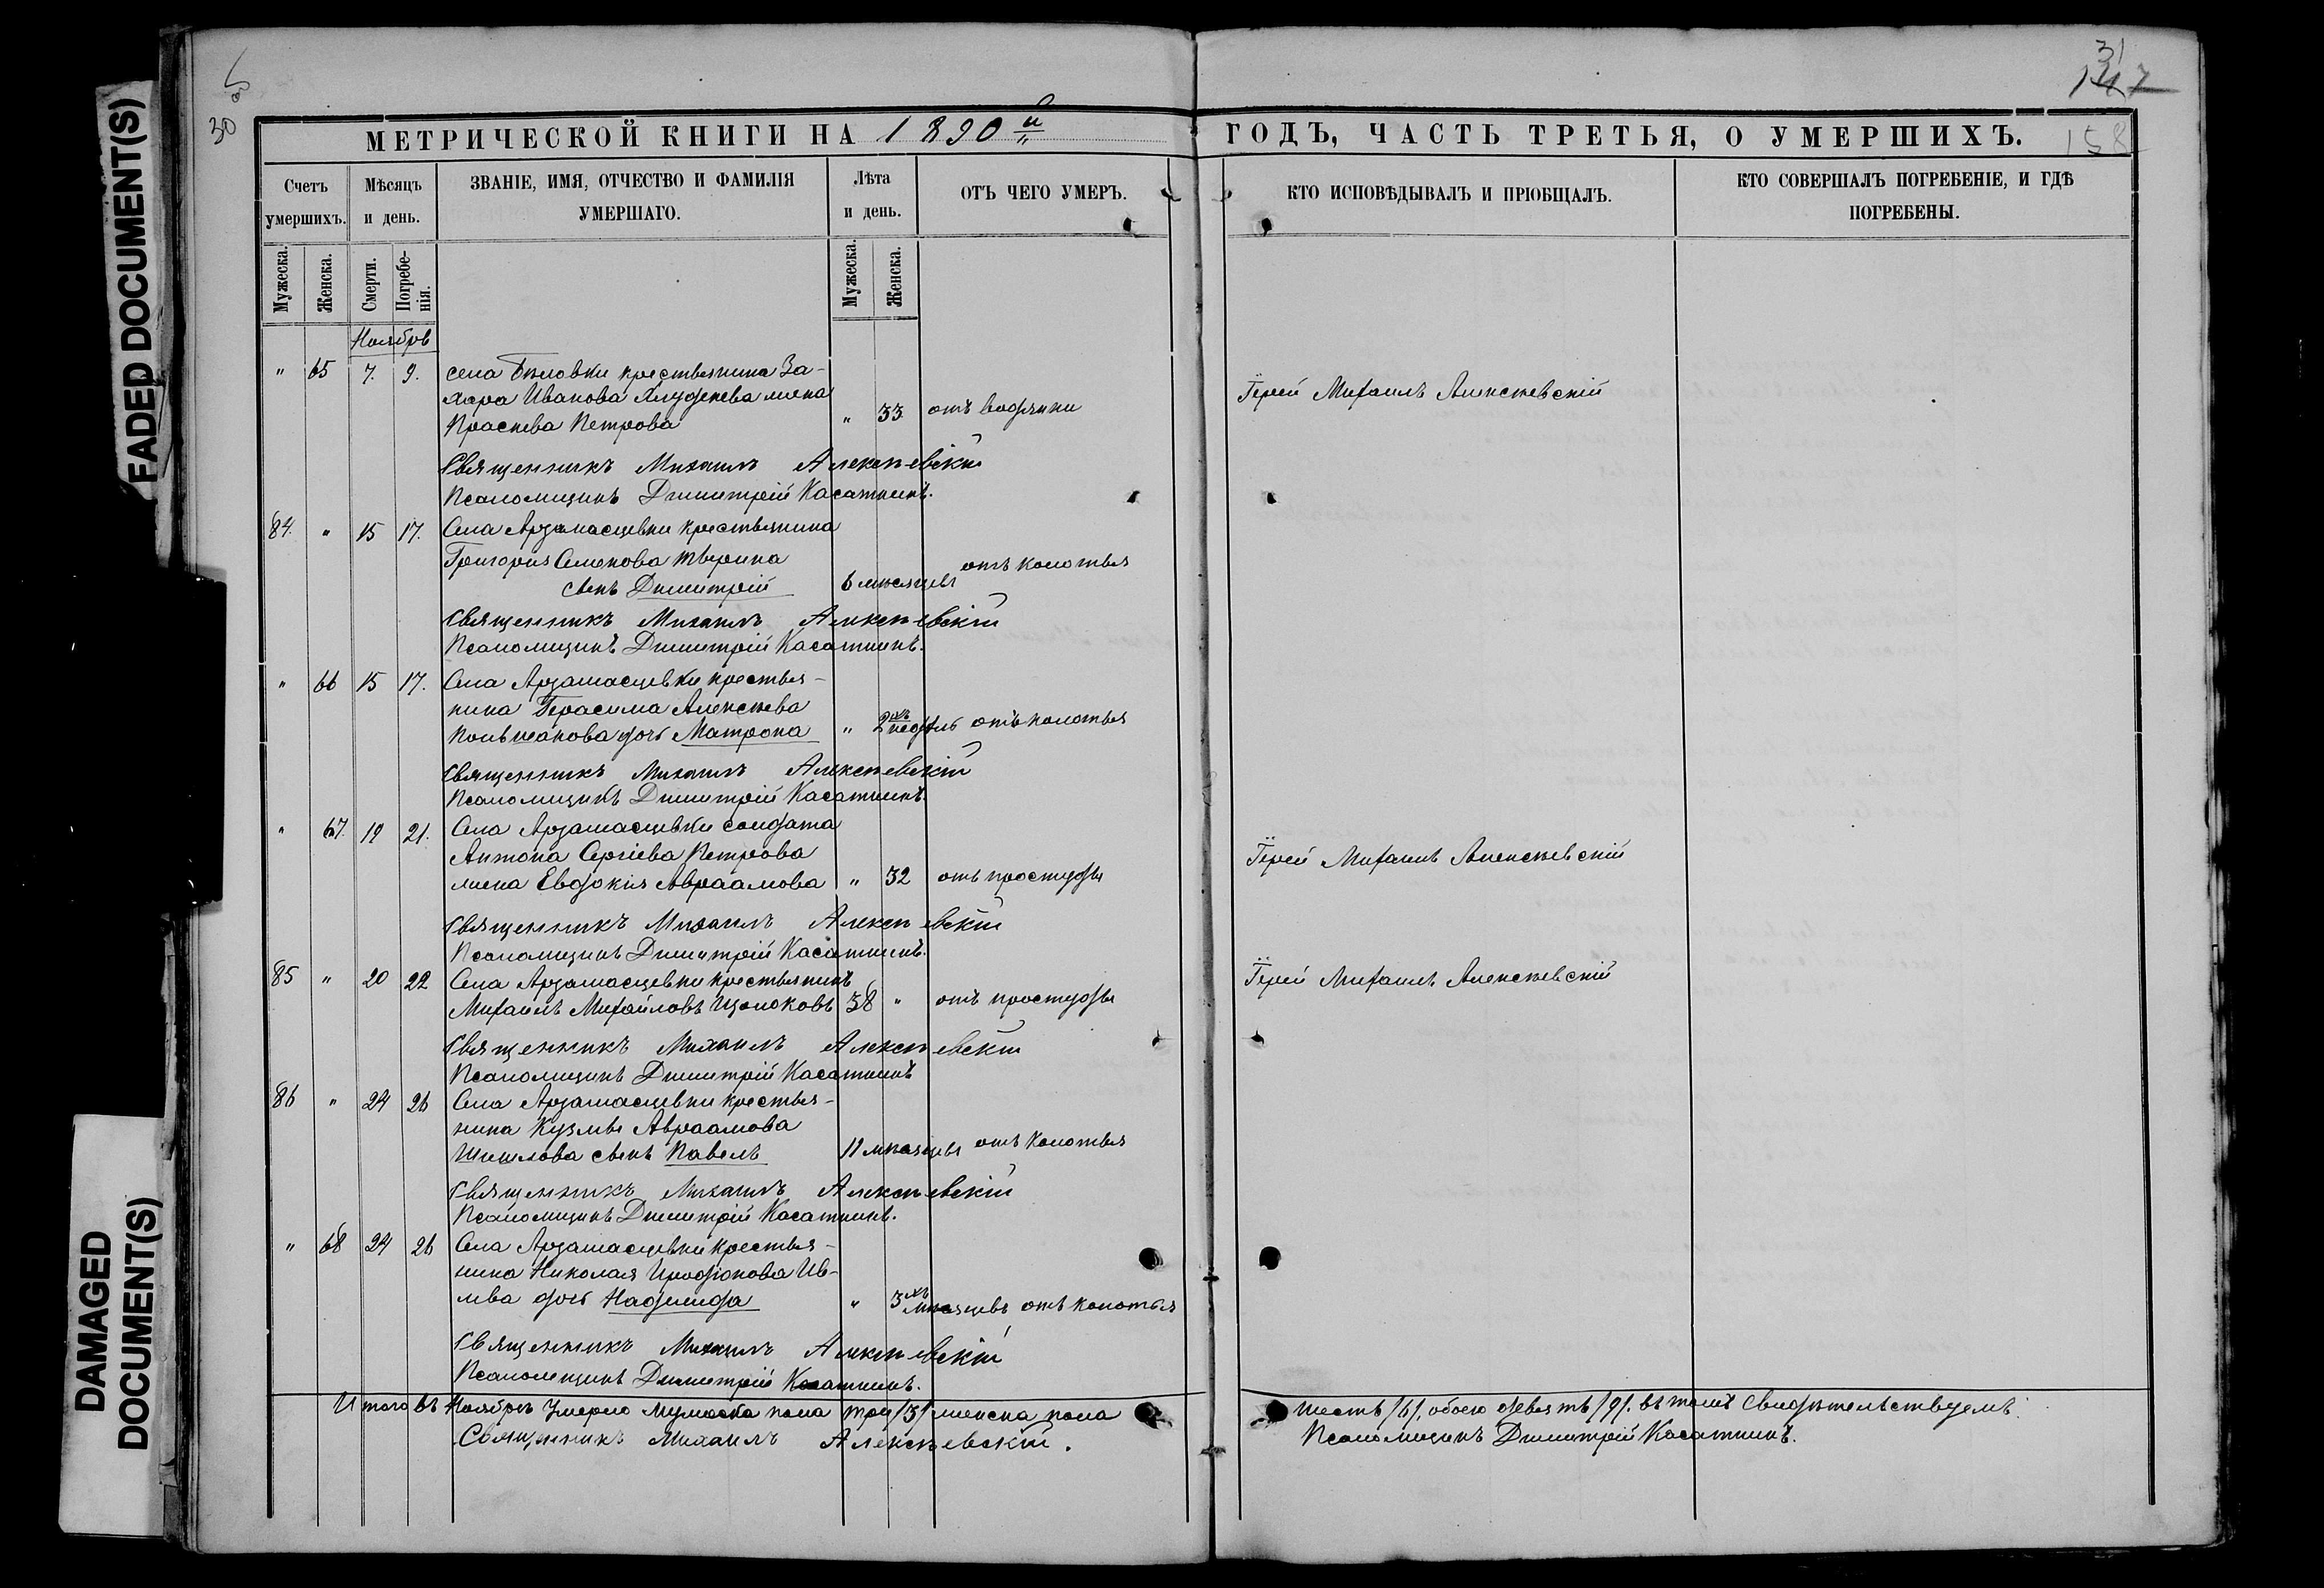 FADED DOCUMENT(S)
DAMAGED DOCUMENT(S)
30
31
158
МЕТРИЧЕСКОЙ КНИГИ НА 1890й
ГОДЪ, ЧАСТЬ ТРЕТЬЯ, О УМЕРШИХЪ.
Счетъ умершихъ.
Мѣсяцъ и день.
ЗВАНІЕ, ИМЯ, ОТЧЕСТВО И ФАМИЛІЯ УМЕРШАГО.
Лѣта и день.
ОТЪ ЧЕГО УМЕРЪ.
КТО ИСПОВѢДЫВАЛЪ И ПРІОБЩАЛЪ.
КТО СОВЕРШАЛЪ ПОГРЕБЕНІЕ, И ГДѢ ПОГРЕБЕНЫ.
Мужеска. Женска. Смерти. Погребенія. Мужеска. Женска.
Ноябрь
" 65 7. 9. села Бѣловки крестьянина За-
хара Иванова жена
Праскева Петрова " 33 отъ водянки
Іерей Михаилъ Алексѣевскій
Священникъ Михаилъ Алексѣевскій
Псаломщикъ Димитрій Касаткинъ.
84. " 15 17. Села Арзамасцевки крестьянина
Григорія Семенова Тверина
сынъ Димитрій 6 мѣсяцевъ отъ колотья
Священникъ Михаилъ Алексѣевскій
Псаломщикъ Димитрій Касаткинъ.
" 66 15 17. Села Арзамасцевки крестья-
нина Герасима Алексѣева
дочь Матрона " 2хъ недѣль отъ колотья
Священникъ Михаилъ Алексѣевскій
Псаломщикъ Димитрій Касаткинъ.
" 67. 19 21. Села Арзамасцевки солдата
Антона Сергіева Петрова
жена Евдокія Авраамова " 32 отъ простуды
Іерей Михаилъ Алексѣевскій
Священникъ Михаилъ Алексѣевскій
Псаломщикъ Димитрій Касаткинъ.
85 " 20 22 Села Арзамасцевки крестьянинъ
Михаилъ Михайловъ Щолоковъ 38 " отъ простуды
Іерей Михаилъ Алексѣевскій
Священникъ Михаилъ Алексѣевскій
Псаломщикъ Димитрій Касаткинъ
86 " 24 26 Села Арзамасцевки крестья-
нина Кузмы Авраамова
Шишлова сынъ Павелъ 11 мѣсяцевъ отъ колотья
Священникъ Михаилъ Алексѣевскій
Псаломщикъ Димитрій Касаткинъ.
" 68 24 26 Села Арзамасцевки крестья-
нина Николая Иродіонова Ив-
лева дочь Надежда " 3хъ мѣсяцевъ отъ колотья
Священникъ Михаилъ Алексѣевскій
Псаломщикъ Димитрій Касаткинъ.
Итого въ Ноябрѣ умерло мужеска пола три /3/ женска пола шесть /6/, обоего девять /9/. въ томъ свидѣтельствуемъ:
Священникъ Михаилъ Алексѣевскій.
Псаломщикъ Димитрій Касаткинъ.